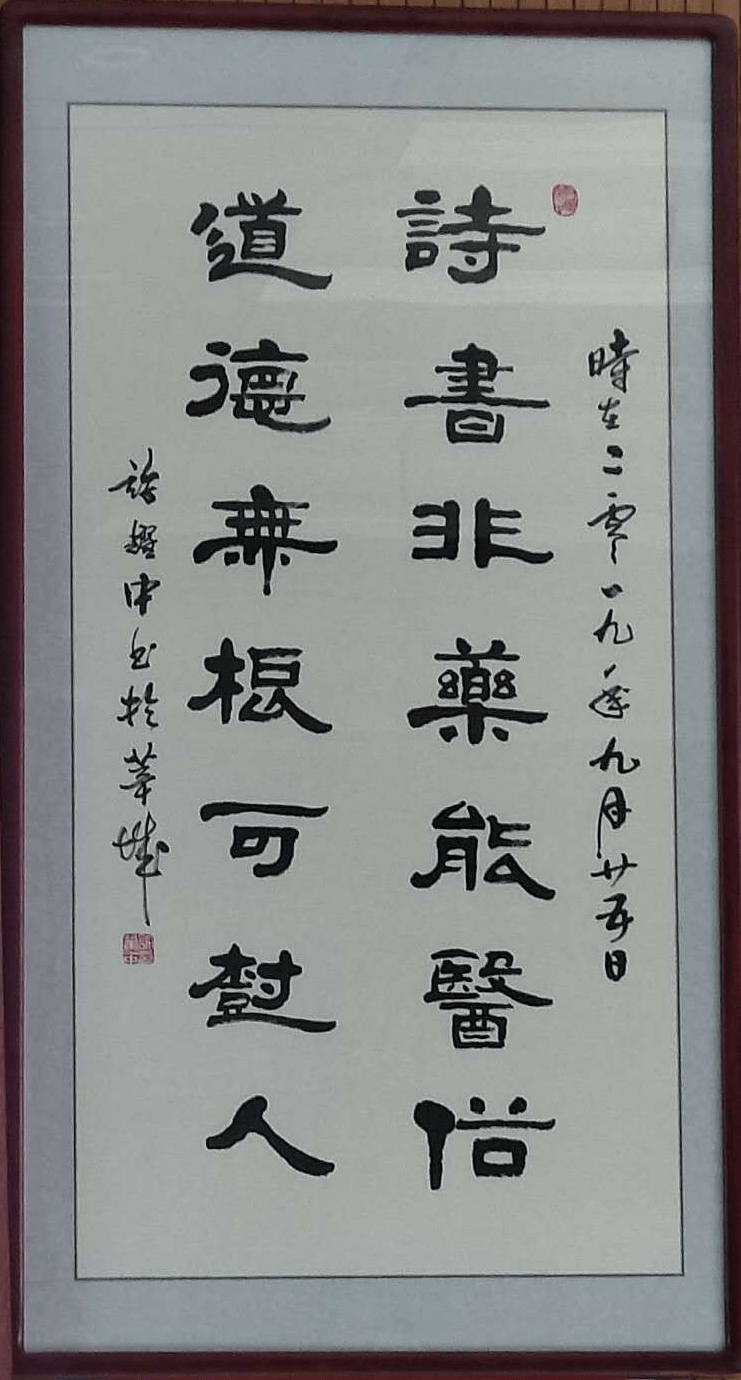 時在二零一九年九月廿五日
詩書非藥能醫俗
道德無根可樹人
中書於華城